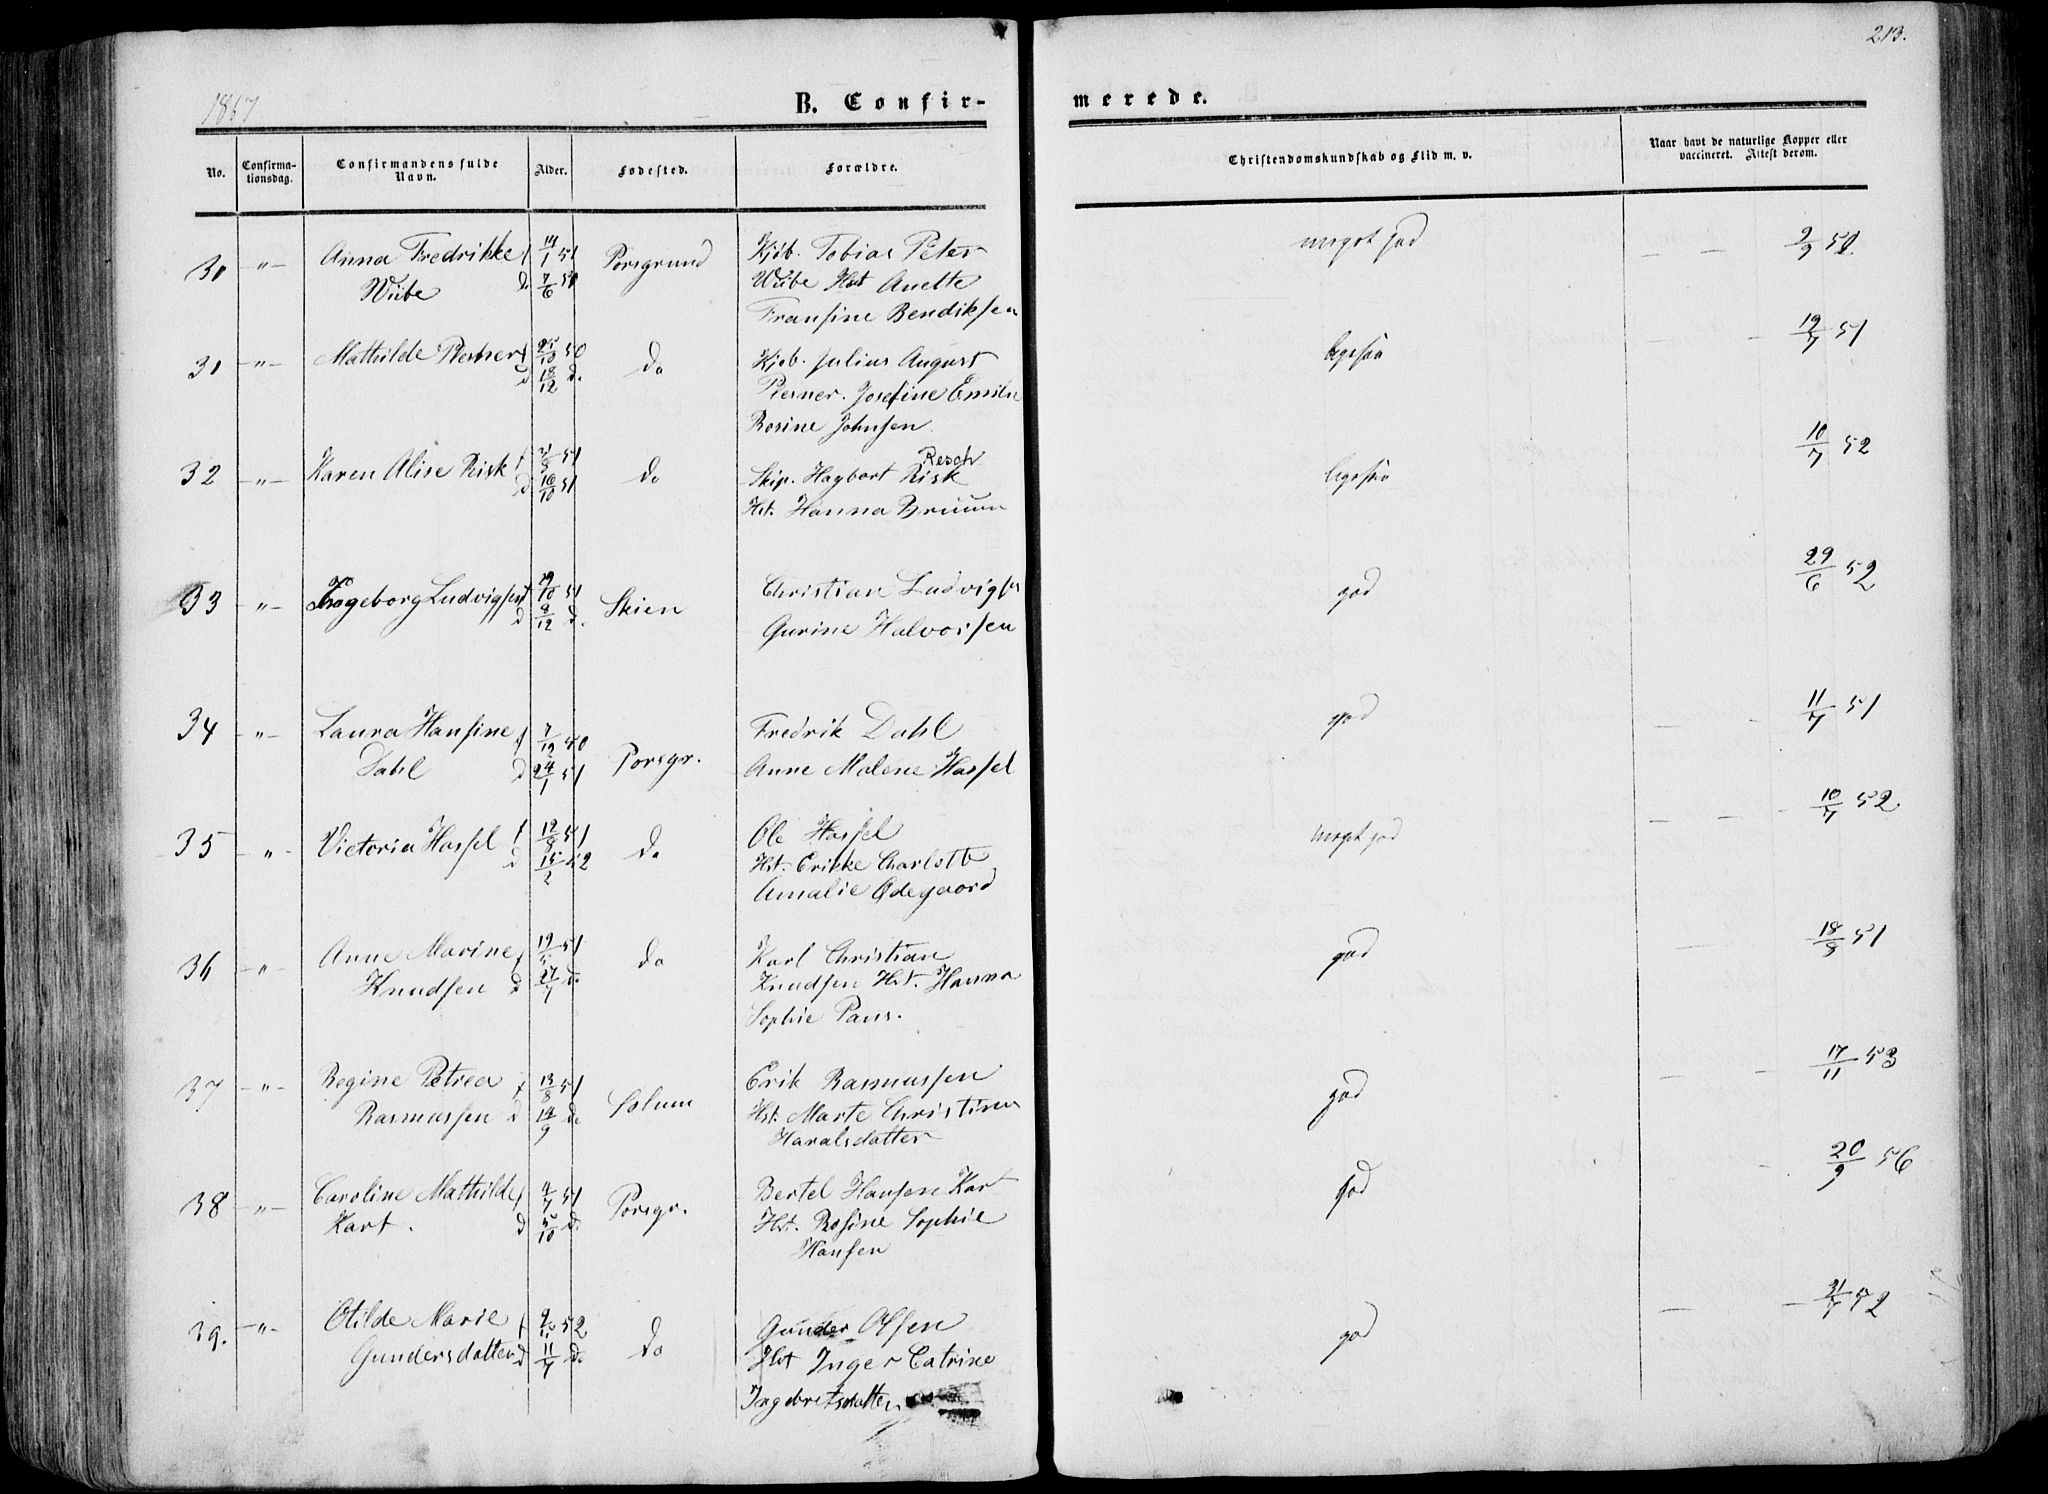 213.
1867
B. Confir-
merede.
No.
Confirma-
tionsdag.
Confirmandens fulde
Navn.
Alder.
Fødested.
Forældre.
Christendomskundskab og Flid m. v.
Naar havt de naturlige Kopper eller
vaccineret. Attest derom.
30 -"- Anna Fredrikke f 14/1 51 Porsgrund Kjøb. Tobias Peter meget god 9/9 51
Wiibe d. 7/6 51 Wiibe Hst Anette
Fransine Bendiksen
31 -"- Mathilde Plesner f 25/10 50 do Kjøb. Julius August ligesaa 19/7 51
d 18/12 d. Plesner. Josefine Emilie
Rosine Johnsen
32 -"- Karen Alise Risk f 21/8 51 do Skip. Hagbart Risk Resch ligesaa 10/7 52
d 16/10 51 Hst. Hanna Bruun
33 -"- Ingeborg Ludvigsen f 29/10 51 Skien Christian Ludvigsen god 29/6 52
d 8/12 d. Gurine Halvorsen
34 -"- Laura Hansine f 7/12 50 Porsgr. Fredrik Dahl god 11/7 51
Dahl d 24/1 51 Anne Malene Hassel
35 -"- Victoria Hassel f 12/8 51 do Ole Hassel meget god 10/7 52.
d 15/2 52 Hst. Erikke Charlotte
Amalie Ødegaard
36 -"- Anne Marine f 19/5 51 do Karl Christian god 18/8 51
Knudsen d 27/7 do Knudsen Hst. Hanna
Sophie Paus.
37 -"- Regine Petrea f 13/8 51 Solum Erik Rasmussen god 17/11 53
Rasmussen d 14/9 do Hst. Marte Christine
Haralsdatter
38 -"- Caroline Mathilde f 4/7 51 Porsgr. Bertel Hansen Kart god 20/9 56
Kart. d 5/10 d. Hst. Rosine Sophie
Hansen
39. -"- Otilde Marie f 52 do Gunder Olsen god 21/7 52
Gundersdatter d 11/7 do Hst Inger Catrine
Ingebretsdatter